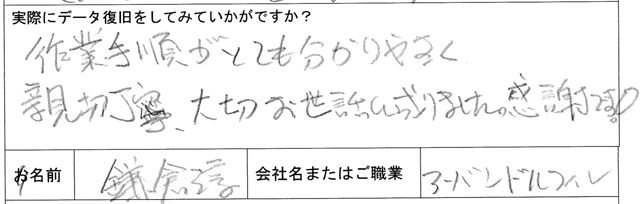 実際にデータ復旧をしてみていかがですか?
作業手順がとても分かりやすく
親切丁寧、大切お世話になりました。感謝です。
お名前 会社名またはご職業 アーバンドルフィン